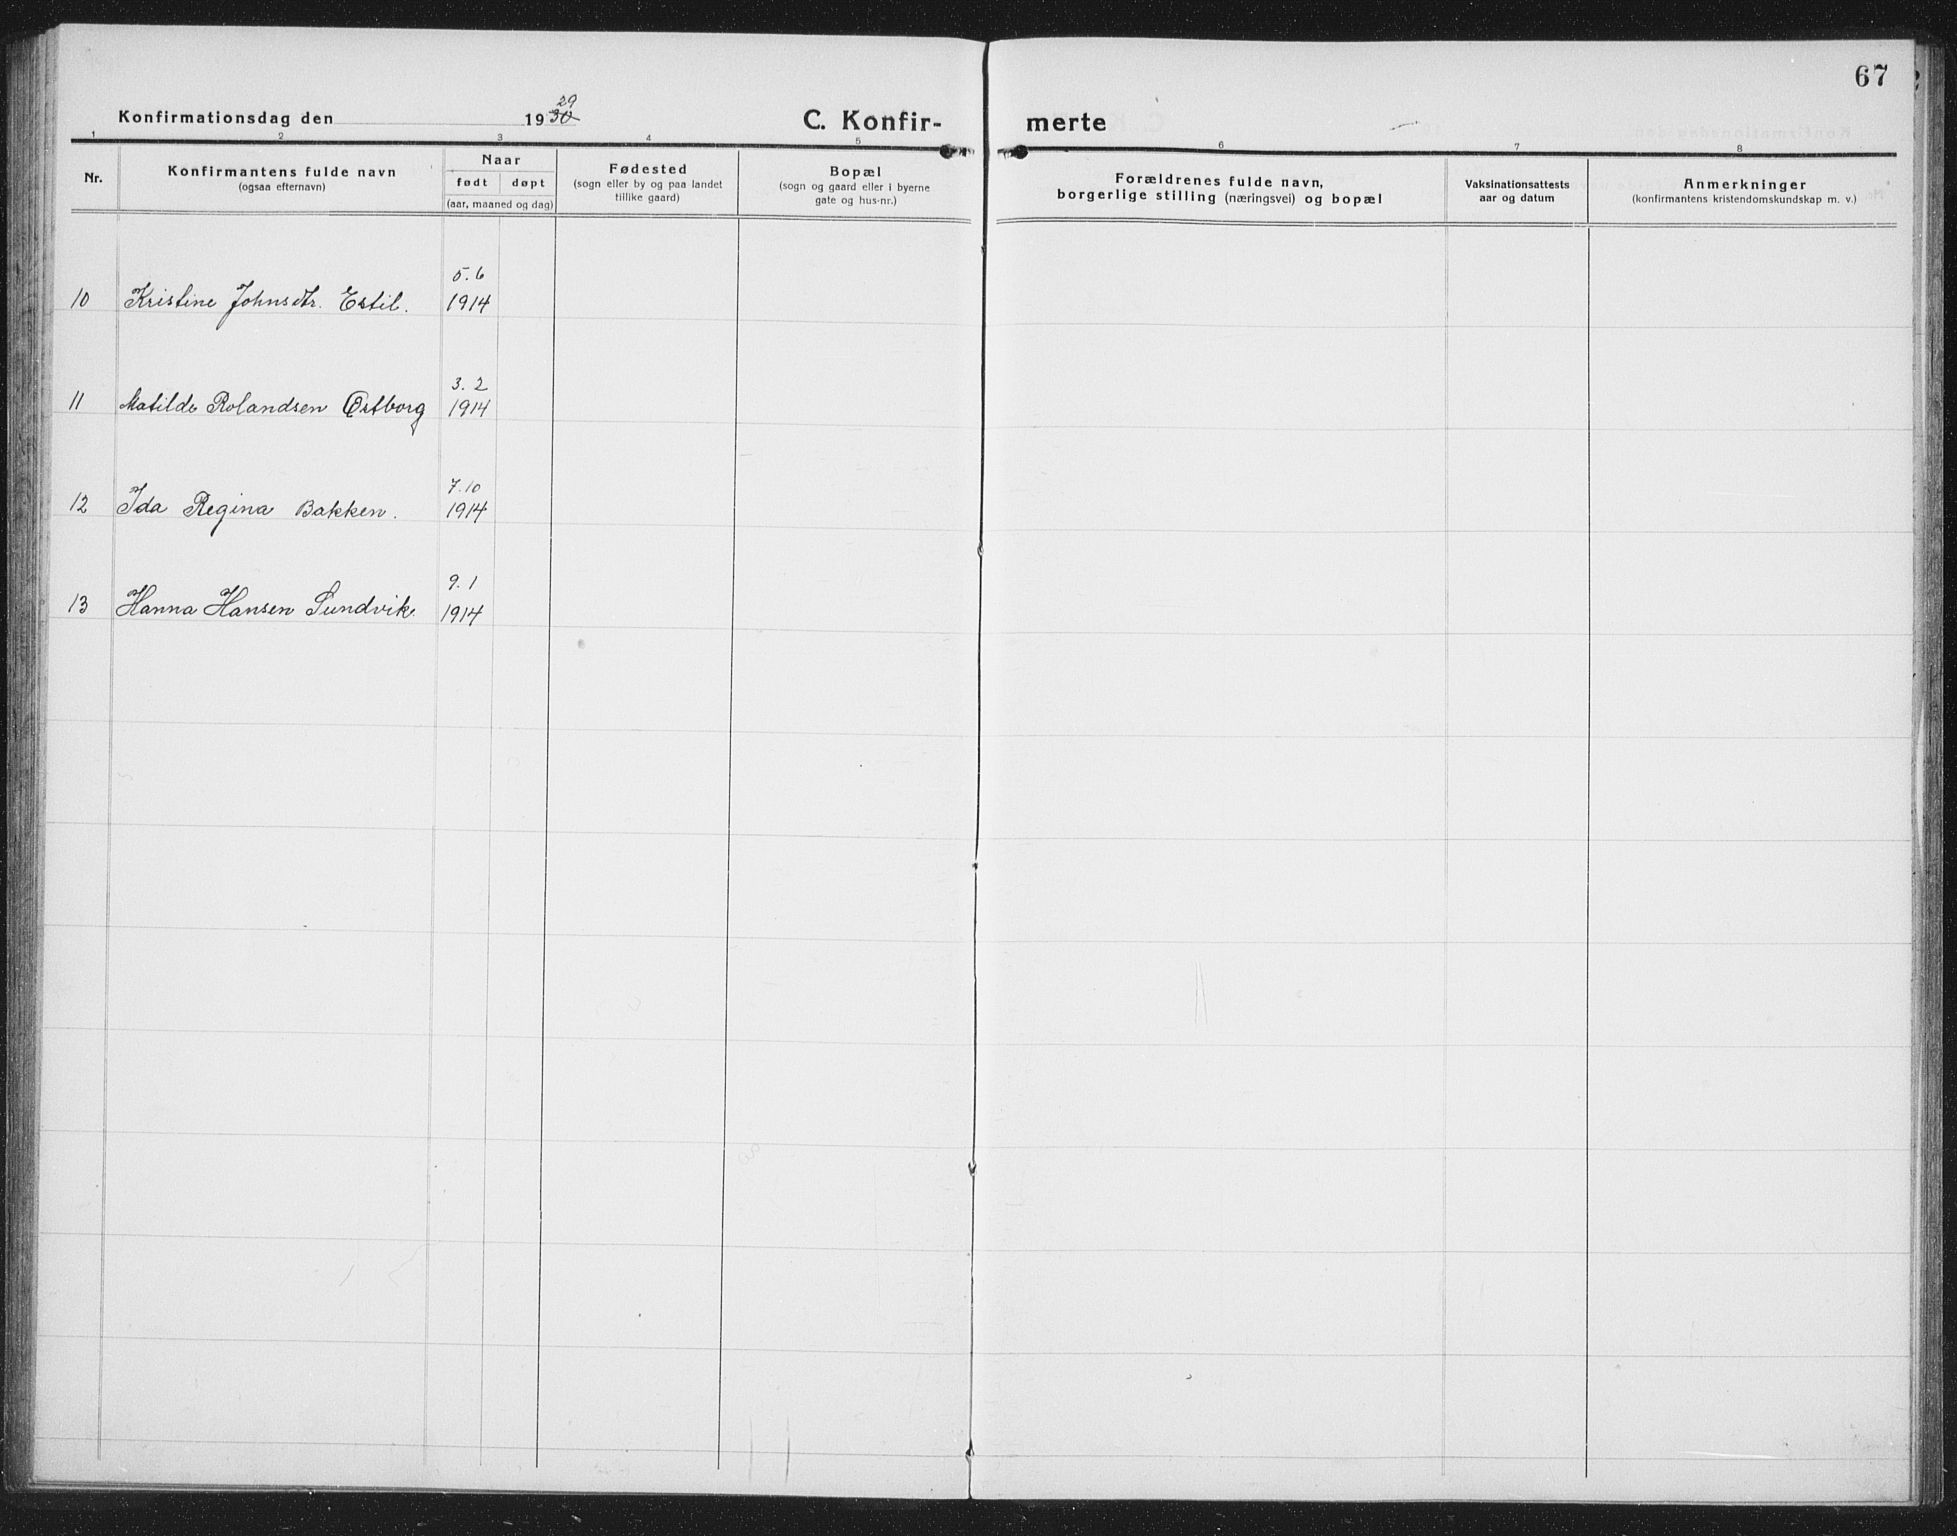 67
29
Konfirmationsdag den 1930
C. Konfir- merte
1 2 3 4 5 6 7 8
Nr.
Konfirmantens fulde navn
(ogsaa efternavn)
Naar
født døpt
(aar, maaned og dag)
Fødested
(sogn eller by og paa landet
tillike gaard)
Bopæl
(sogn og gaard eller i byerne
gate og hus-nr.)
Forældrenes fulde navn,
borgerlige stilling (næringsvei) og bopæl
Vaksinationsattests
aar og datum
Anmerkninger
(konfirmantens kristendomskundskap m. v.)
5. 6
10 Kristine Johnsdtr. Estil. 1914
3. 2
11 Matilde Rolandsen Østborg 1914
7. 10
12 Ida Regina Bakken. 1914
9. 1
13 Hanna Hansen Sundvik. 1914